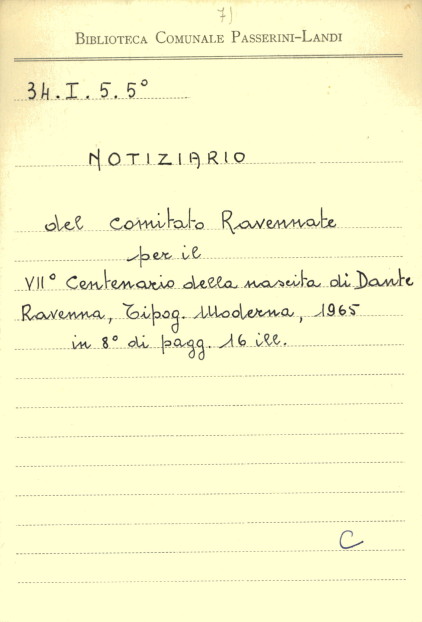 7)
BIBLIOTECA COMUNALE PASSERINI-LANDI
34.I.5.5°
NOTIZIARIO
del Comitato Ravennate
per il
VII° Centenario della nascita di Dante
Ravenna, Tipog. Moderna, 1965
in 8° di pagg. 16 ill.
C